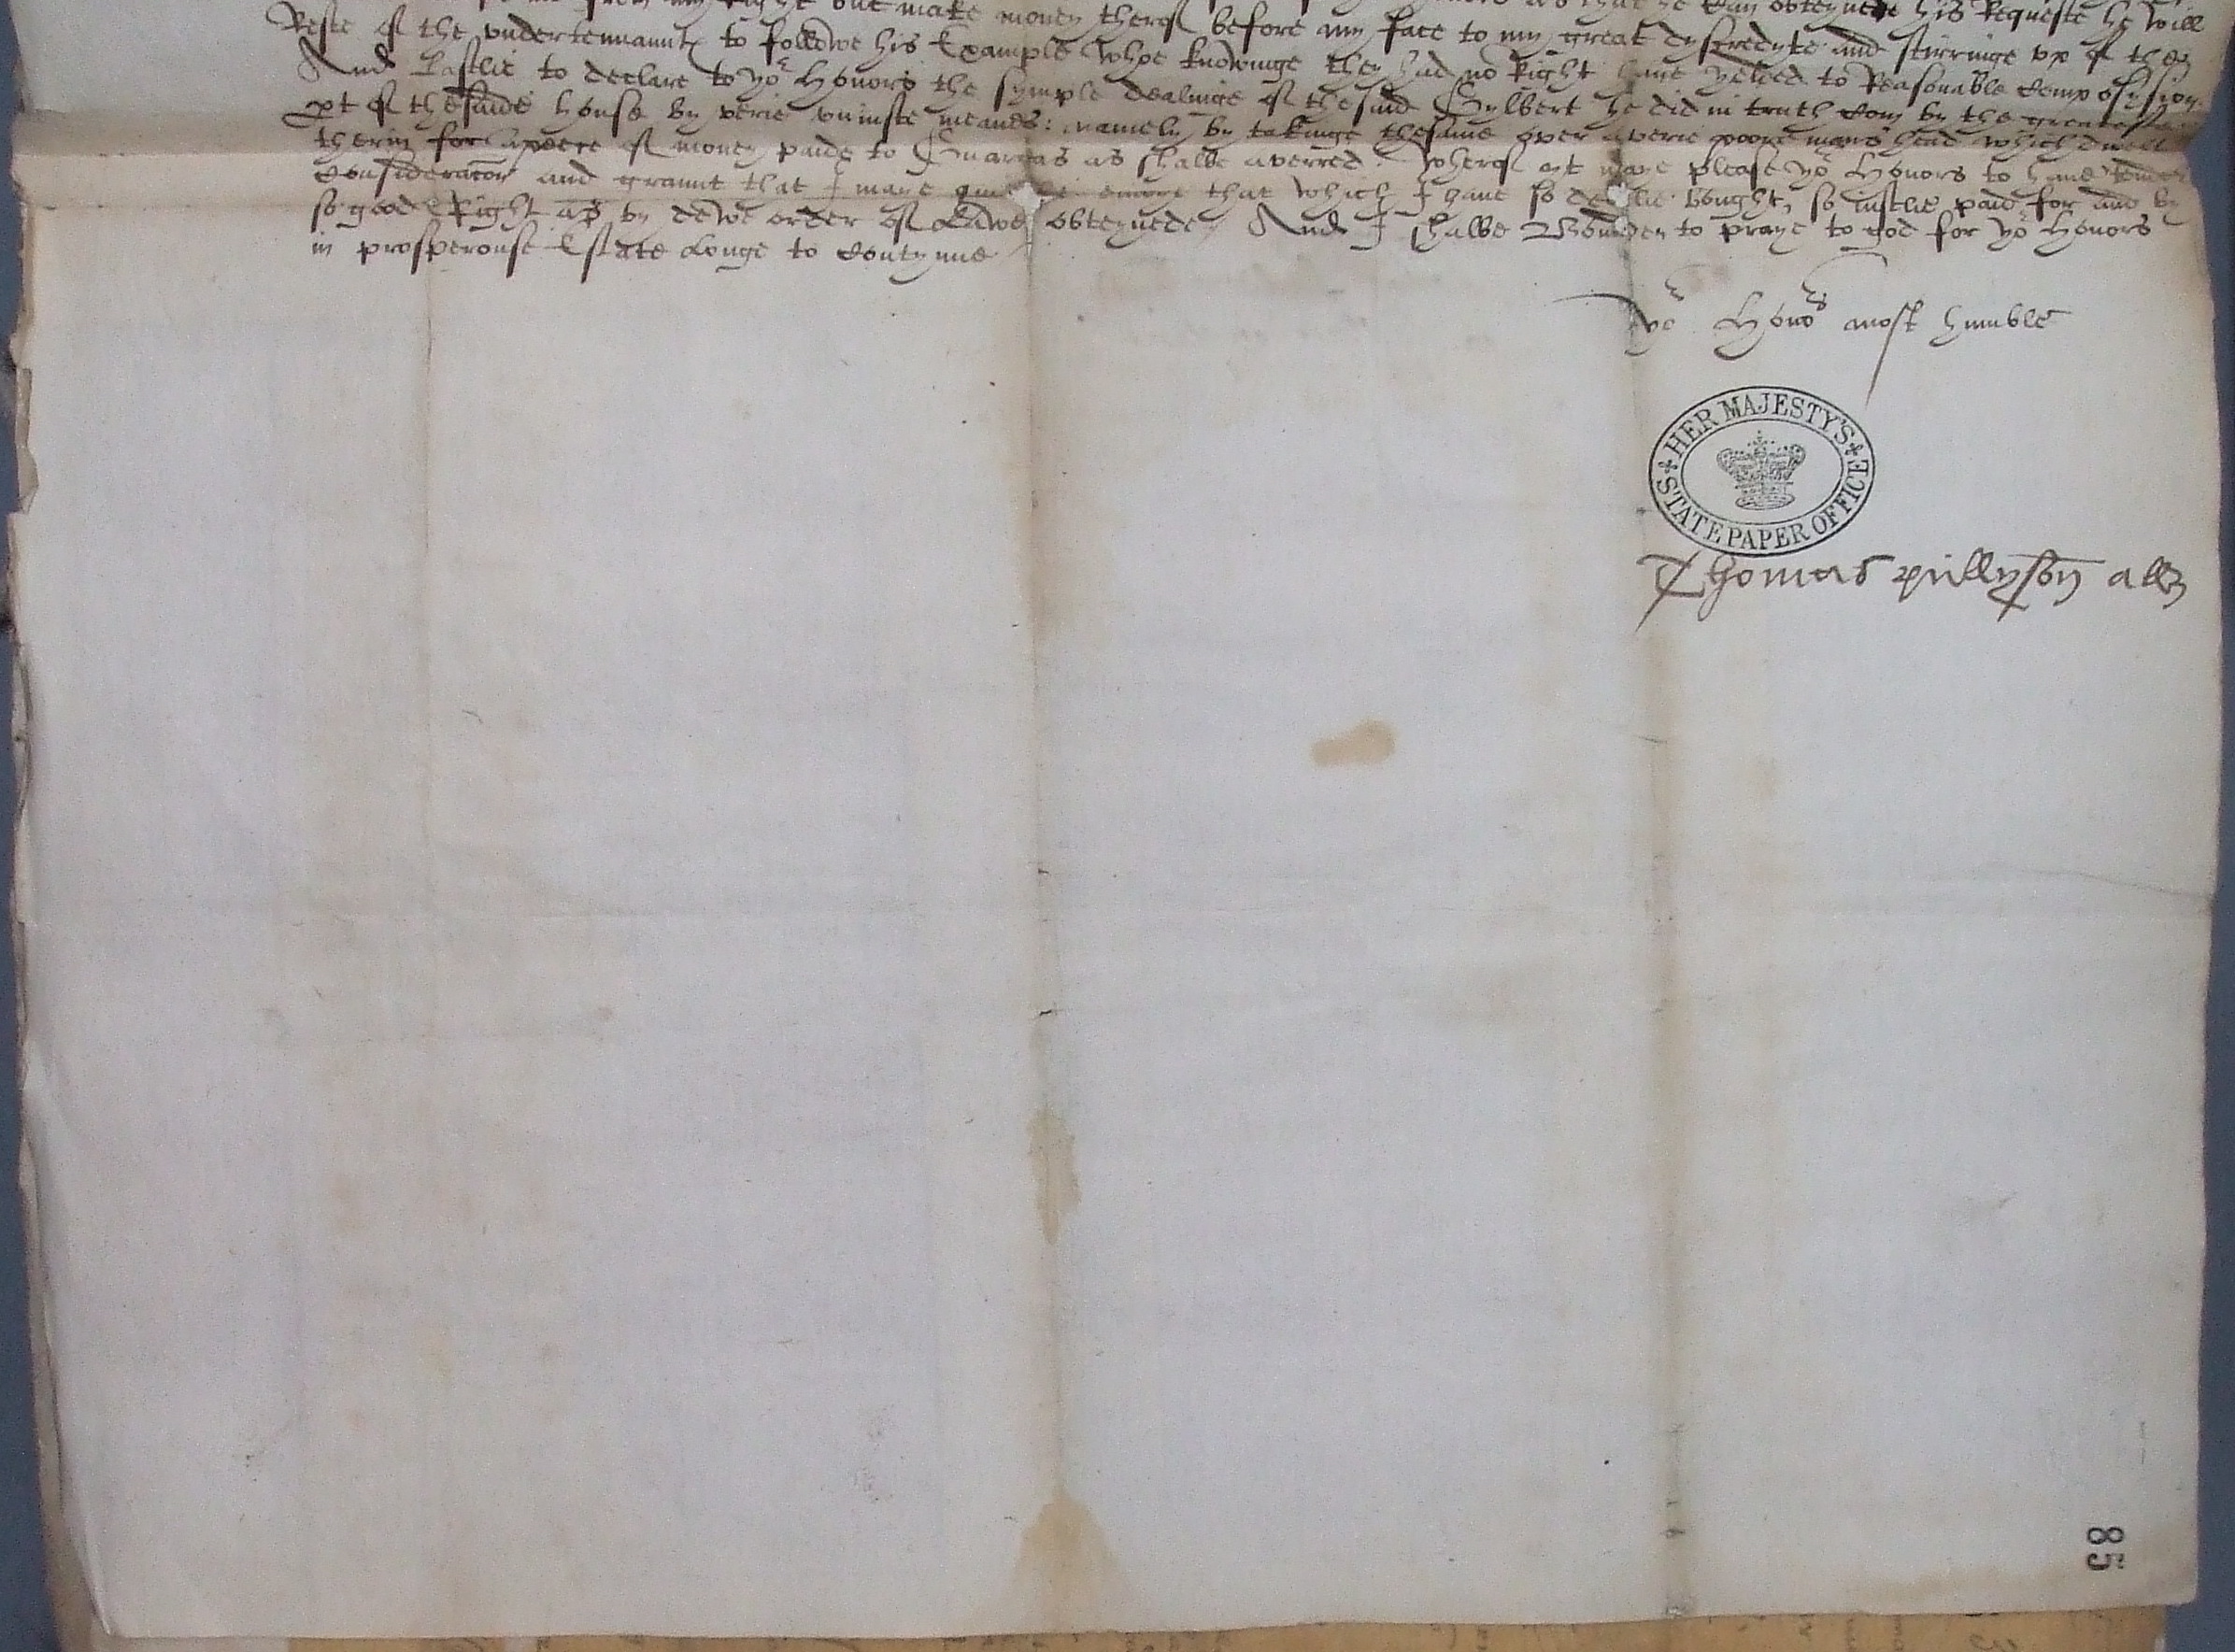 my Right but make money therof before my face to my great dyscredyte and stirringe vp of the
obteynede his Requeste he will
Reste of the vndertennaunts to followe his Example whoe knowinge they had no Right have yelded to Reasonable composysion.
And Lastlie to declare to yor Honors the symple dealinge of thesaid Gylbert he did in truth com by the greateste
pt of thesaide house by verie vniuste meanes: namely by takinge thesame over a verie poore mans head which dwelt
therin for a peece of money paide to as shalbe averred. Wherof yt maye please yor Honors to have
consideracon and graunt that I maye that which I have so bought, so iustlie paid for and by
so good Right as by dewe order of Lawe obteynede. And I shalbe Bounden to praye to god for yor Honors
in prosperouse Estate Longe to contynue
yor Honors most humble
HER MAJESTY'S STATE PAPER OFFICE
Thomas pullyson
85